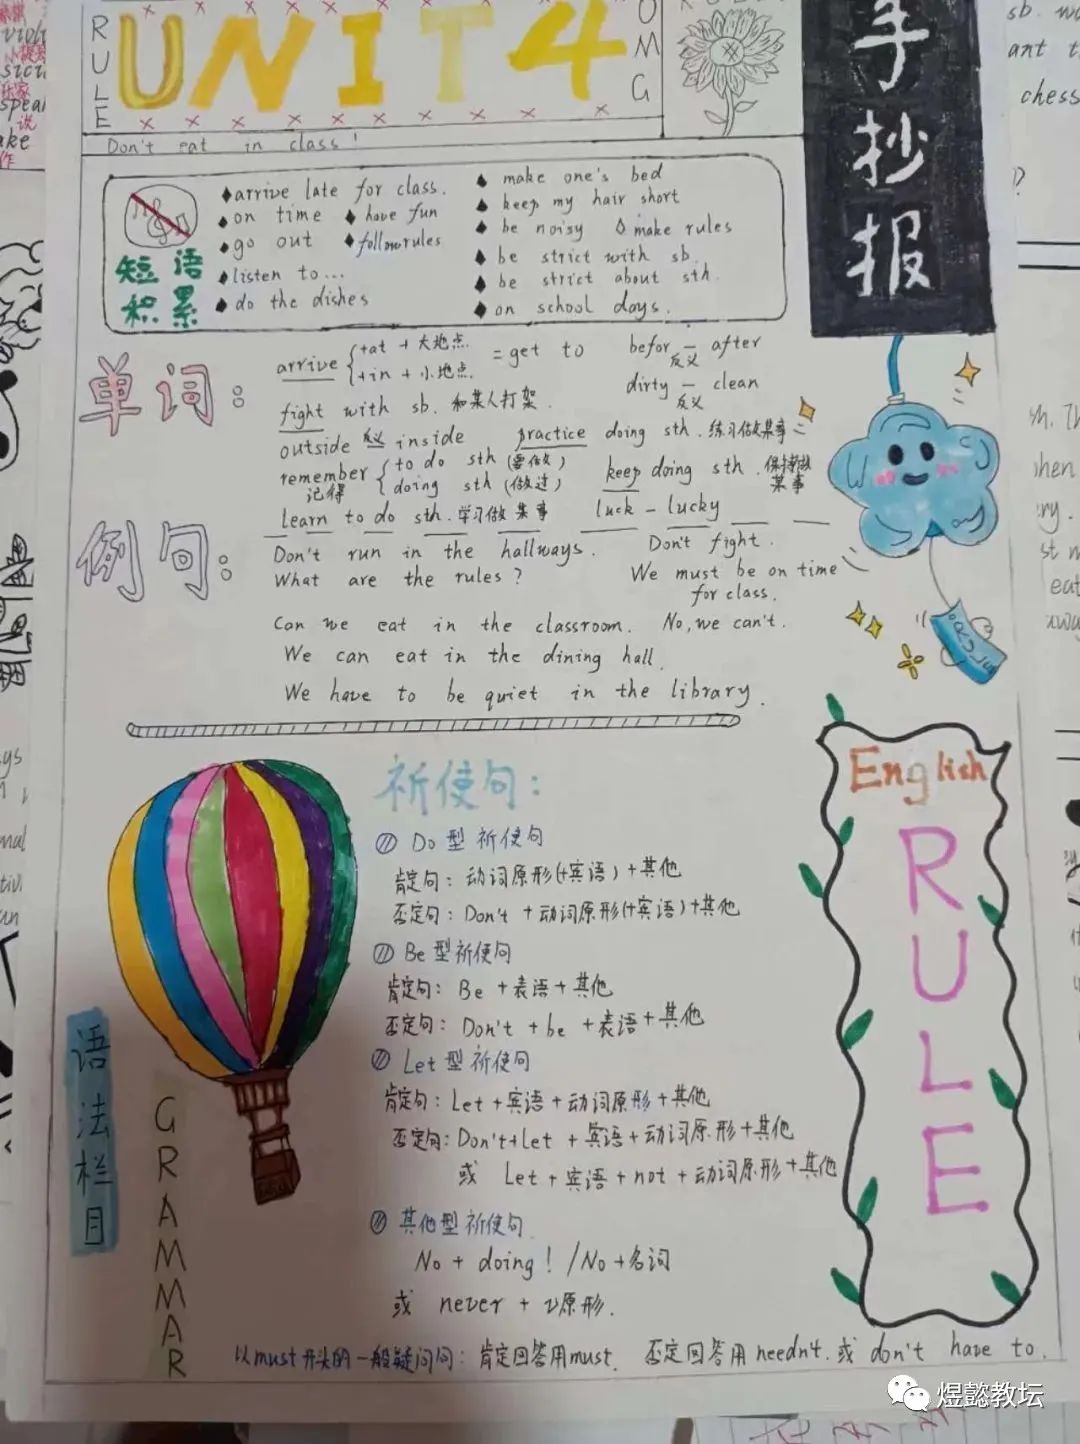 RULE
UNIT 4
OMG
手抄报
Don't eat in class!
短语积累
♦arrive late for class.
♦on time ♦have fun
♦go out ♦follow rules
♦listen to...
♦do the dishes
♦make one's bed
♦keep my hair short
♦be noisy ◊make rules
♦be strict with sb.
♦be strict about sth.
♦on school days.
单词:
arrive {+at + 大地点.
+in + 小地点. = get to
befor — after
反义
dirty — clean
反义
fight with sb. 和某人打架.
outside 反义 inside
practice doing sth. 练习做某事
remember { to do sth (要做)
记得 doing sth (做过)
keep doing sth. 保持做某事
Learn to do sth. 学习做某事
luck - lucky
例句:
Don't run in the hallways. Don't fight.
What are the rules? We must be on time for class.
Can we eat in the classroom. No, we can't.
We can eat in the dining hall.
We have to be quiet in the library.
祈使句:
Do型祈使句
肯定句: 动词原形(+宾语)+其他
否定句: Don't +动词原形(+宾语)+其他
Be型祈使句
肯定句: Be +表语+其他
否定句: Don't +be +表语+其他
Let型祈使句
肯定句: Let+宾语+动词原形+其他
否定句: Don't+Let +宾语+动词原形+其他
或 Let+宾语+not+动词原形+其他
其他型祈使句.
No + doing! /No +名词
或 never + v原形.
语法栏目
GRAMMAR
English
RULE
以must开头的一般疑问句: 肯定回答用must. 否定回答用needn't. 或 don't have to.
煜懿教坛